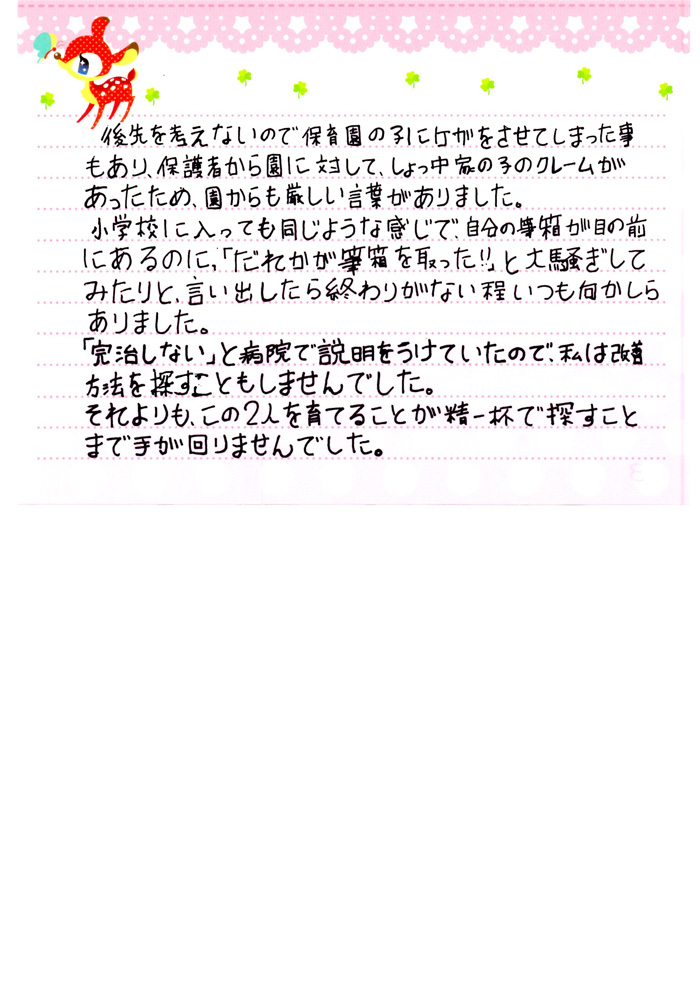 後先を考えないので保育園の子にケガをさせてしまった事
もあり、保護者から園に対して、しょっ中家の子のクレームが
あったため、園からも厳しい言葉がありました。
小学校に入っても同じような感じで、自分の筆箱が目の前
にあるのに、「だれかが筆箱を取った!!」と大騒ぎして
みたりと、言い出したら終わりがない程いつも何かしら
ありました。
「完治しない」と病院で説明をうけていたので、私は改善
方法を探すこともしませんでした。
それよりも、この2人を育てることが精一杯で探すこと
まで手が回りませんでした。